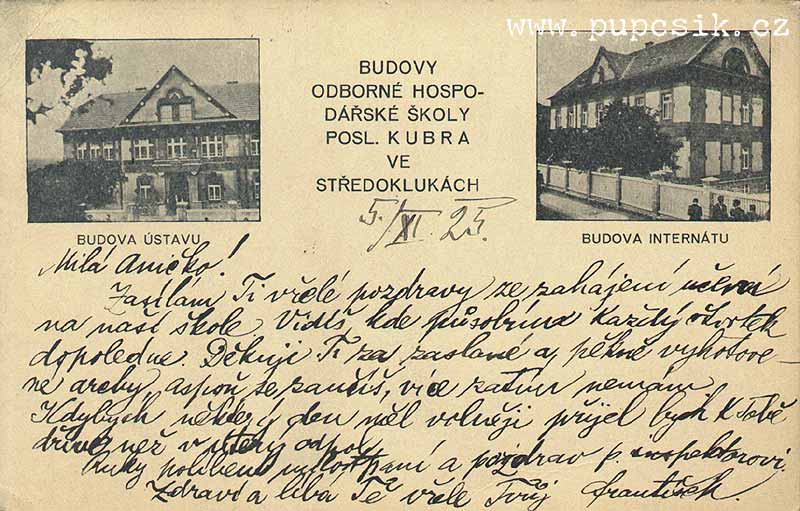 www.pupcsik.cz
BUDOVY
ODBORNÉ HOSPO-
DÁŘSKÉ ŠKOLY
POSL. KUBRA
VE
STŘEDOKLUKÁCH
5./XI. 25.
BUDOVA ÚSTAVU
BUDOVA INTERNÁTU
Milá Aničko!
Zasílám Ti vřelé pozdravy ze zahájení učení
na naší škole Vidíš, kde působím každý čtvrtek
dopoledne. Děkuji Ti za zaslané a pěkně vyhotove-
né archy, aspoň se zaučíš, více zatím nemám
Kdybych některý den měl volněji přijel bych k Tobě
dříve než v úterý odpol.
Ruky políbení milostpaní a pozdrav p. inspektorovi.
Zdraví a líbá Tě vřele Tvůj František.